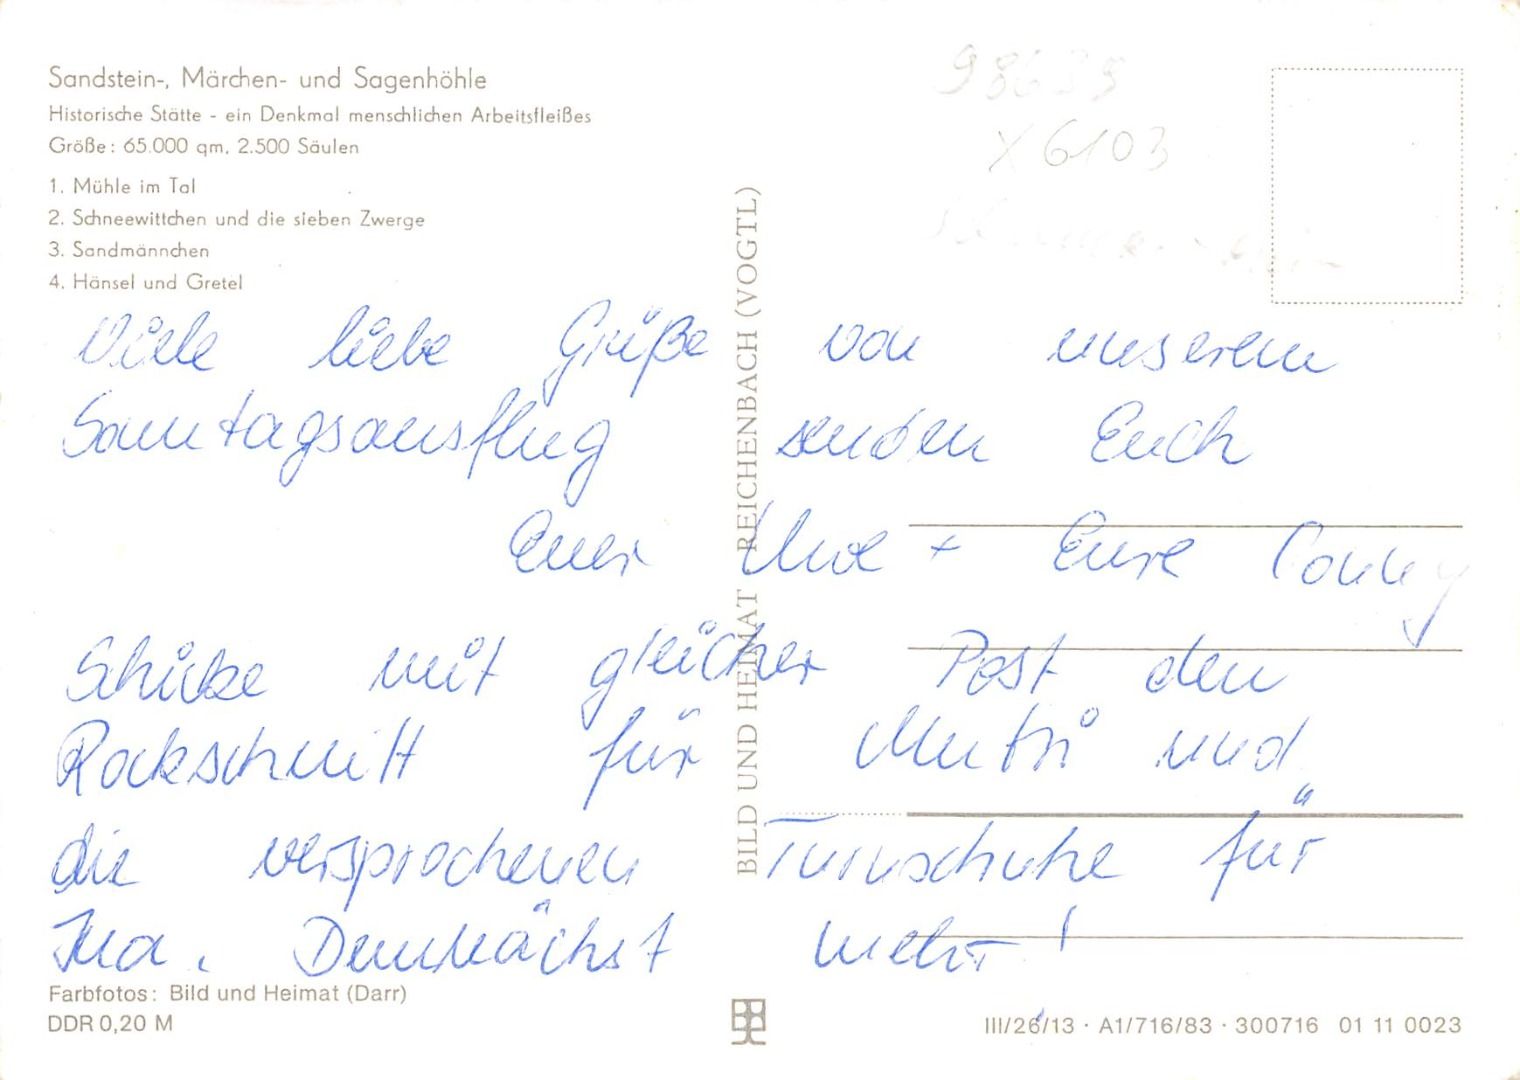 Sandstein-, Märchen- und Sagenhöhle
Historische Stätte - ein Denkmal menschlichen Arbeitsfleißes
Größe: 65.000 qm, 2.500 Säulen
1. Mühle im Tal
2. Schneewittchen und die sieben Zwerge
3. Sandmännchen
4. Hänsel und Gretel
98635
X 6103
Viele liebe Grüße von unserem
Sonntagsausflug senden Euch
Euer Uwe + Eure Conny
Schicke mit gleicher Post den
Rockschnitt für Mutti und
die versprochenen Turnschuhe für
Ina. Demnächst mehr!
BILD UND HEIMAT REICHENBACH (VOGTL)
Farbfotos: Bild und Heimat (Darr)
DDR 0,20 M
III/26/13 · A1/716/83 · 300716 01 11 0023